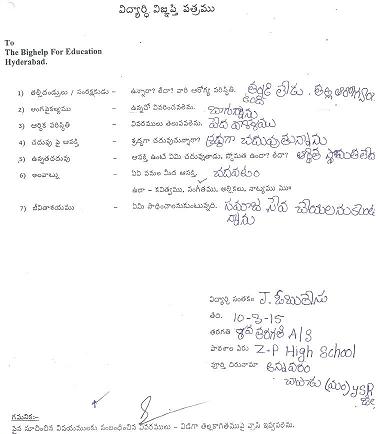 విద్యార్థి విజ్ఞప్తి పత్రము
To
The Bighelp For Education
Hyderabad.
1) తల్లిదండ్రులు / సంరక్షకుడు - ఉన్నారా? లేదా? వారి ఆరోగ్య పరిస్థితి. తండ్రి లేడు. తల్లి
ఉంది
2) అంగవైకల్యము - ఉన్నచో వివరించవలెను. బాగున్నాను
3) ఆర్థిక పరిస్థితి - వివరములు తెలుపవలెను. పేద
4) చదువు పై ఆసక్తి - శ్రద్ధగా చదువుచున్నారా? శ్రద్ధగా చదువుతున్నాను
5) ఉన్నతచదువు - ఆసక్తి ఉంటే ఏమి చదువుతాడు, స్తోమత ఉందా? లేదా?
6) అలవాట్లు - ఏఏ పనుల మీద ఆసక్తి. చదవటం
ఉదా - కవిత్వము, సంగీతము, అల్లికలు, నాట్యము మొ॥
7) జీవితాశయము - ఏమి సాధించాలనుకుంటున్నది. సమాజ సేవ చేయాలనుకుంటు
న్నాను
విద్యార్థి సంతకం J.
తేది. 10-3-15
తరగతి 8వ తరగతి A/S
పాఠశాల పేరు Z.P High School
పూర్తి చిరునామా
(మం) YSR
గమనిక:-
పైన సూచించిన విషయములకు సంబంధించిన వివరములు - విడిగా తెల్లకాగితముపై వ్రాసి ఇవ్వవలెను.